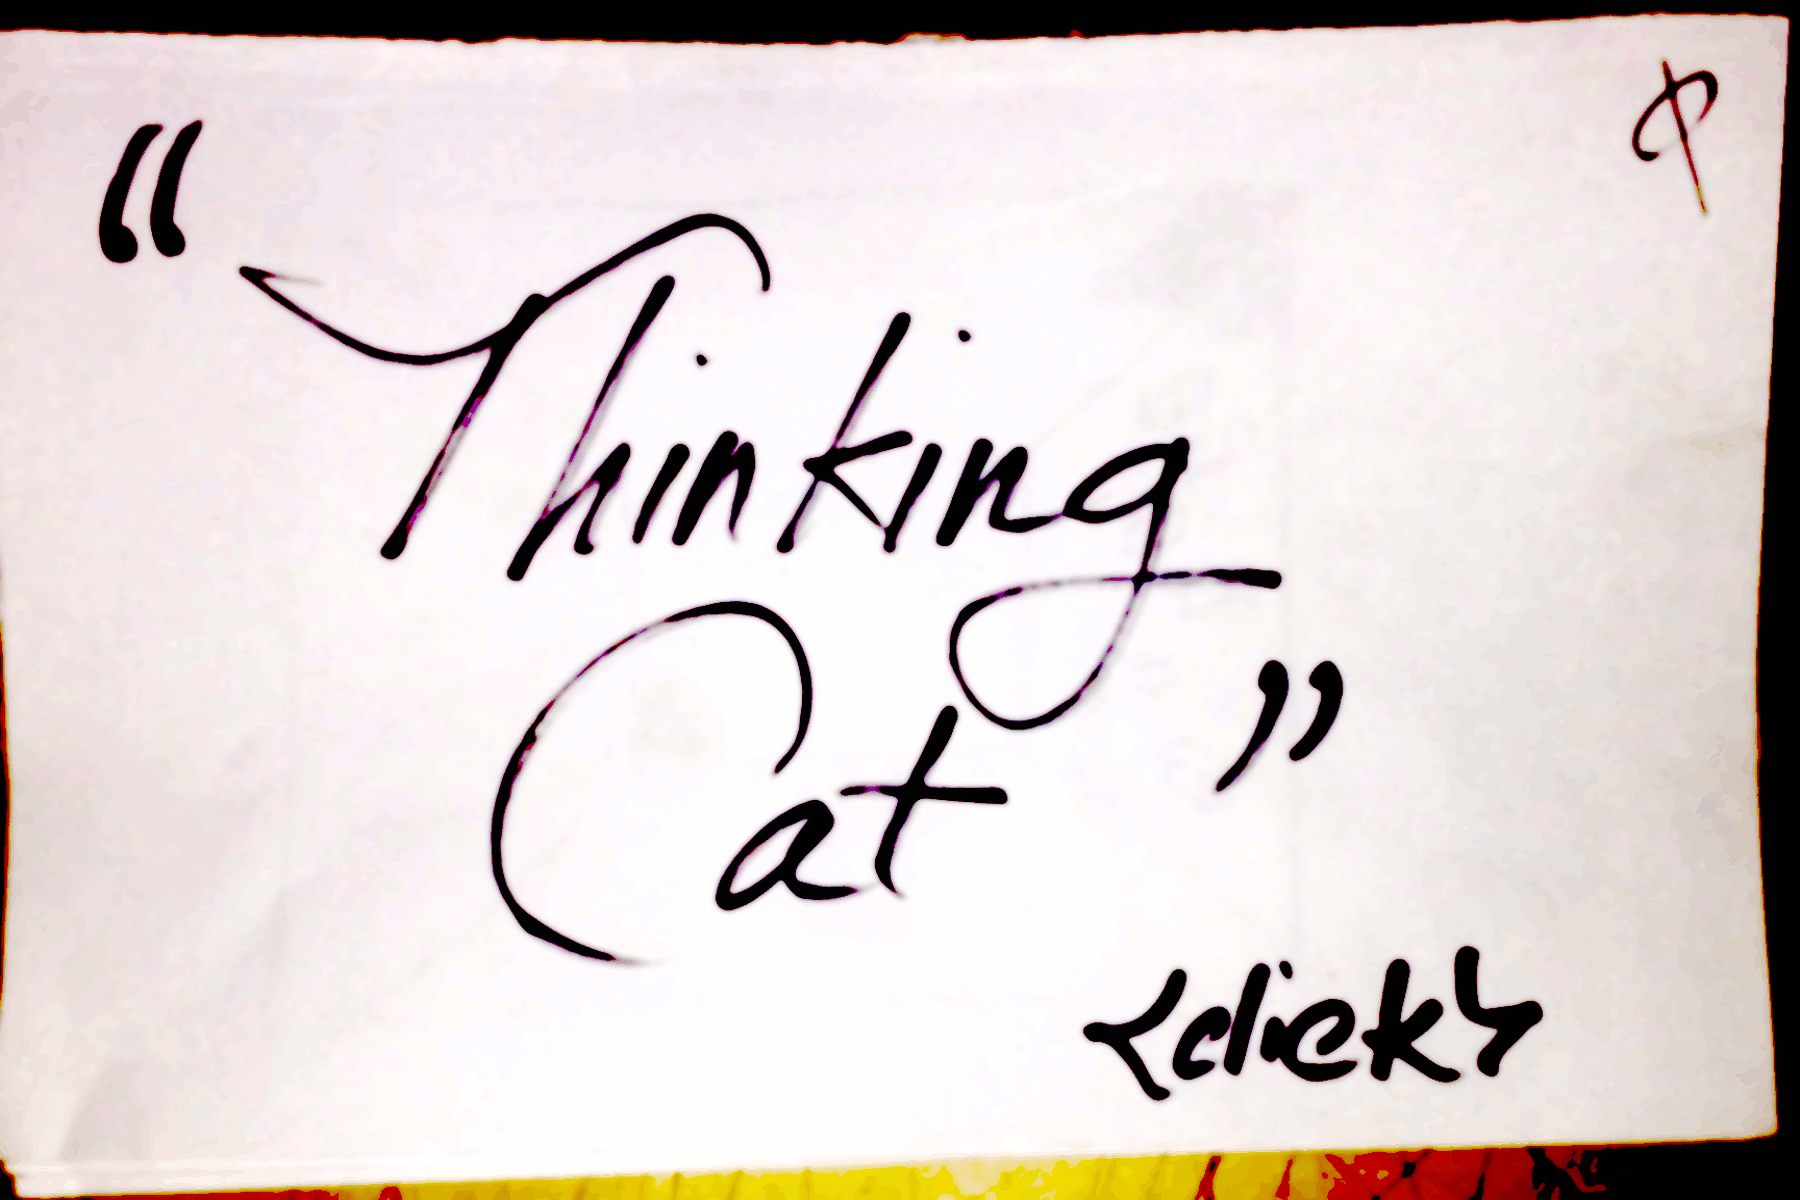 “Thinking
Cat”
<click>